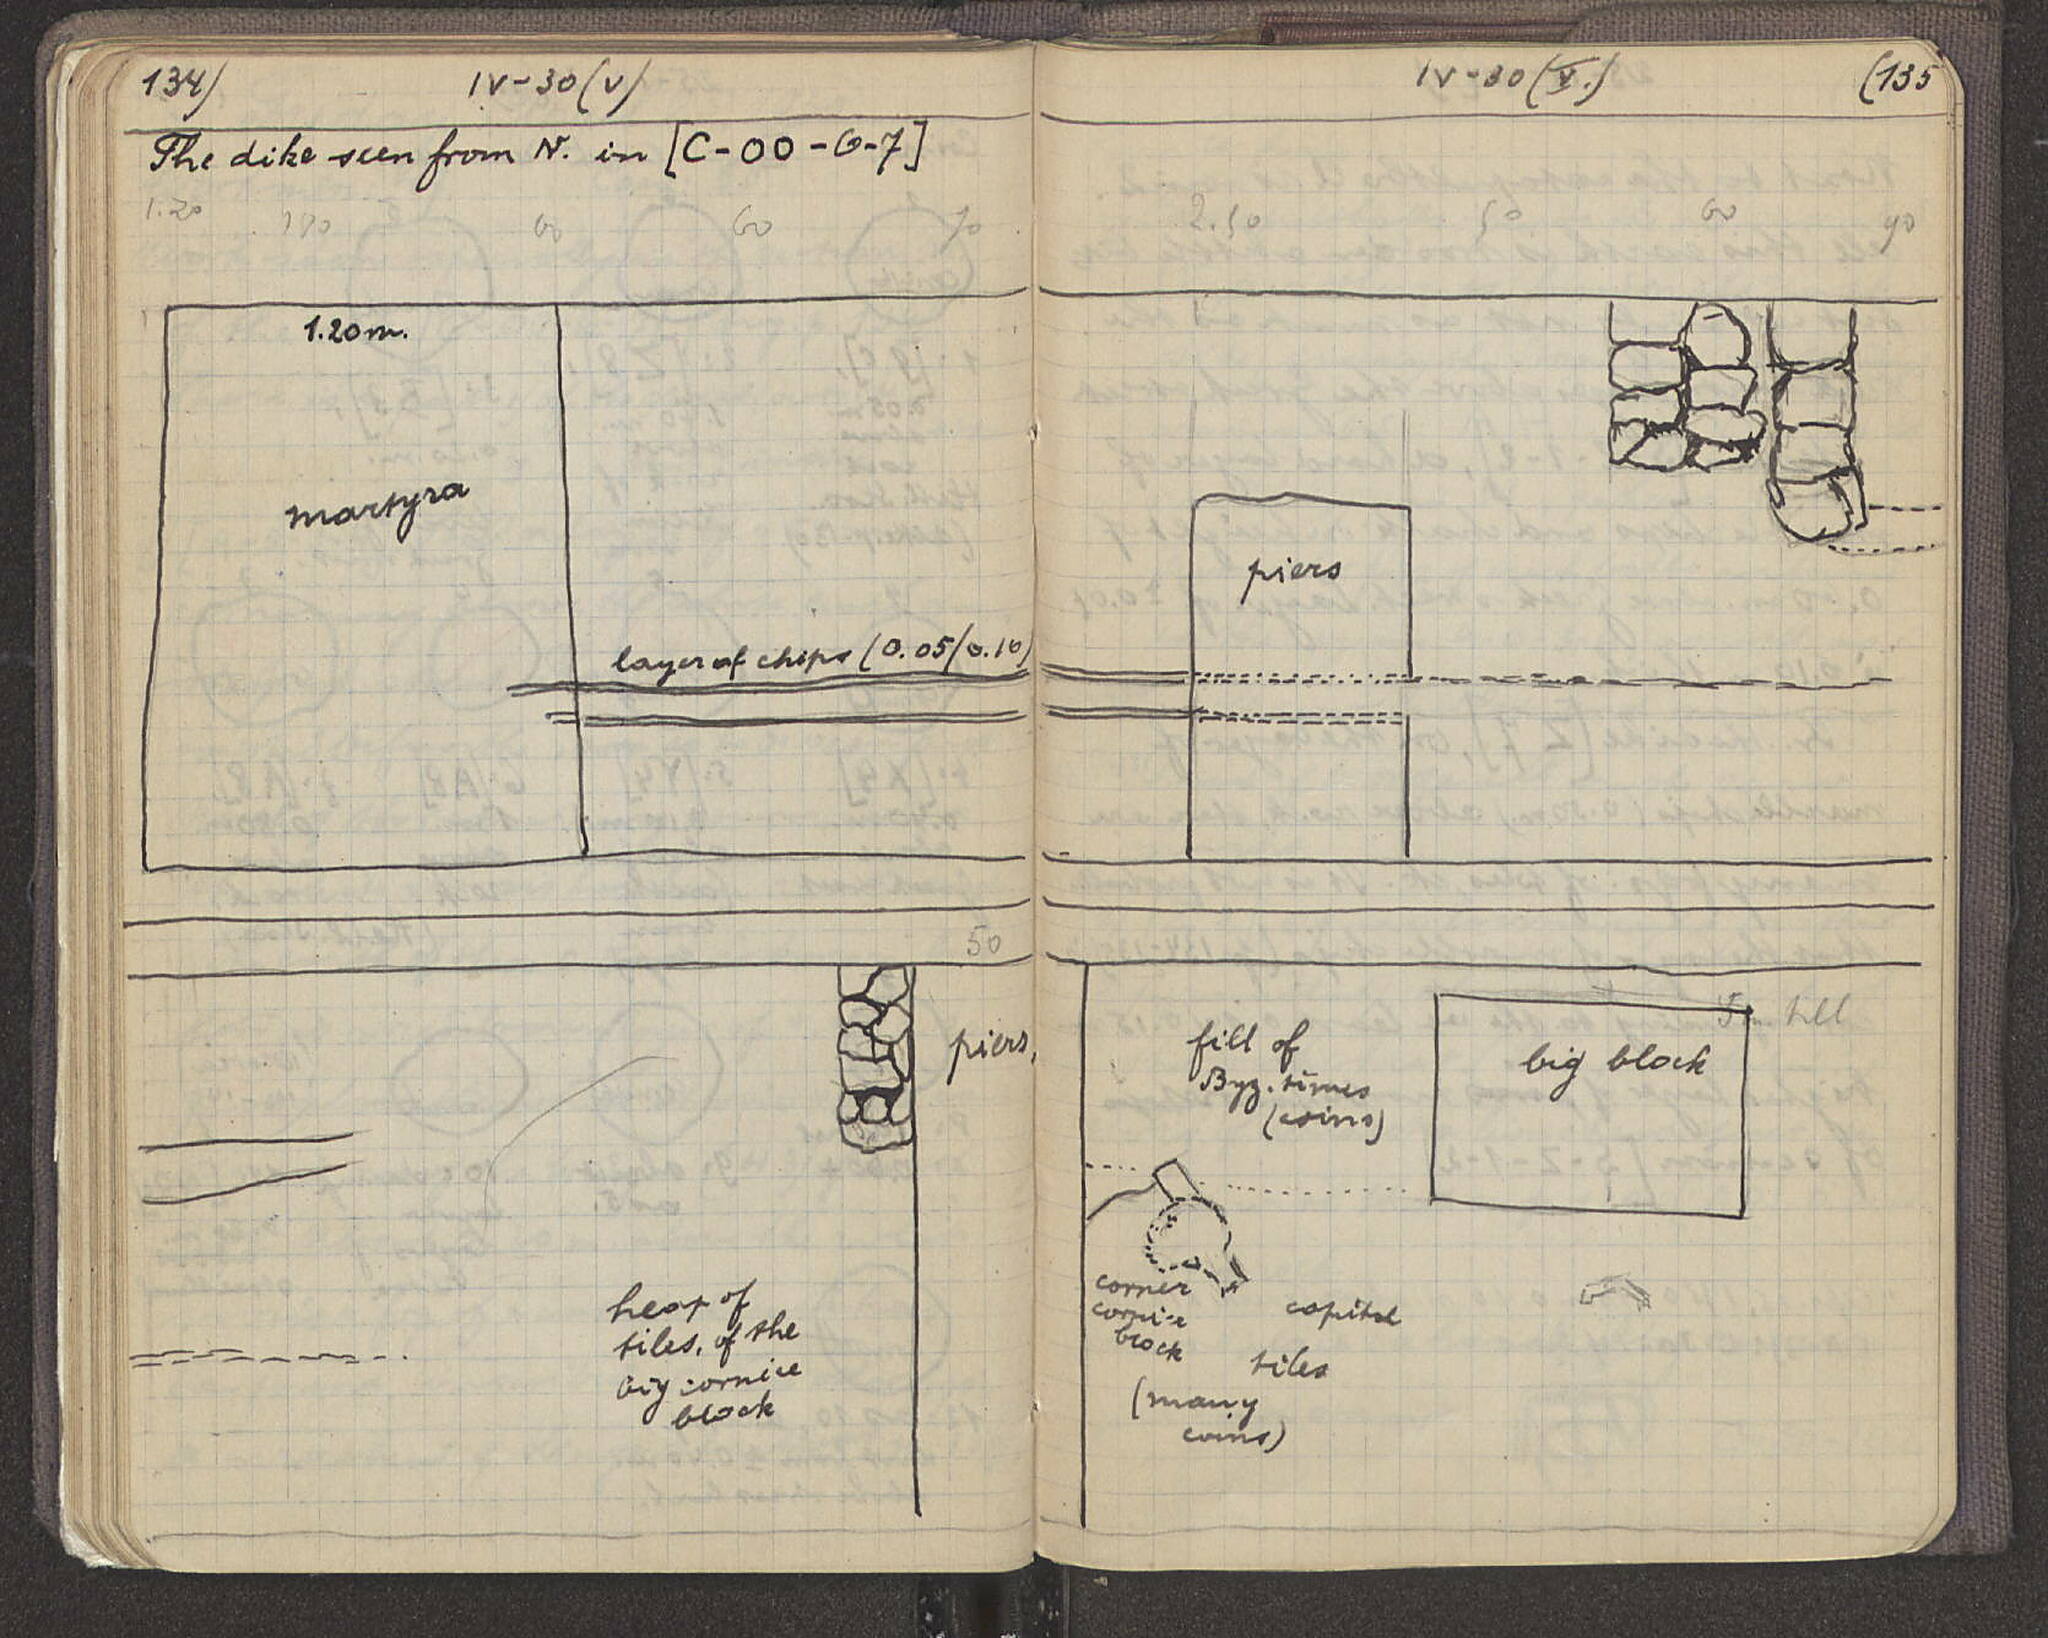 134)
IV-30(V)
The dike seen from N. in [C-00-6-7]
1.20
170
60
60
70
1.20 m.
martyra
layer of chips (0.05/0.10)
50
piers,
heap of
tiles, of the
big cornice
block
IV-30(V.)
(135
2.50
50
60
90
piers
fill of
Byz. times
(coins)
big block
fill
corner
cornice
block
capital
tiles
(many
coins)